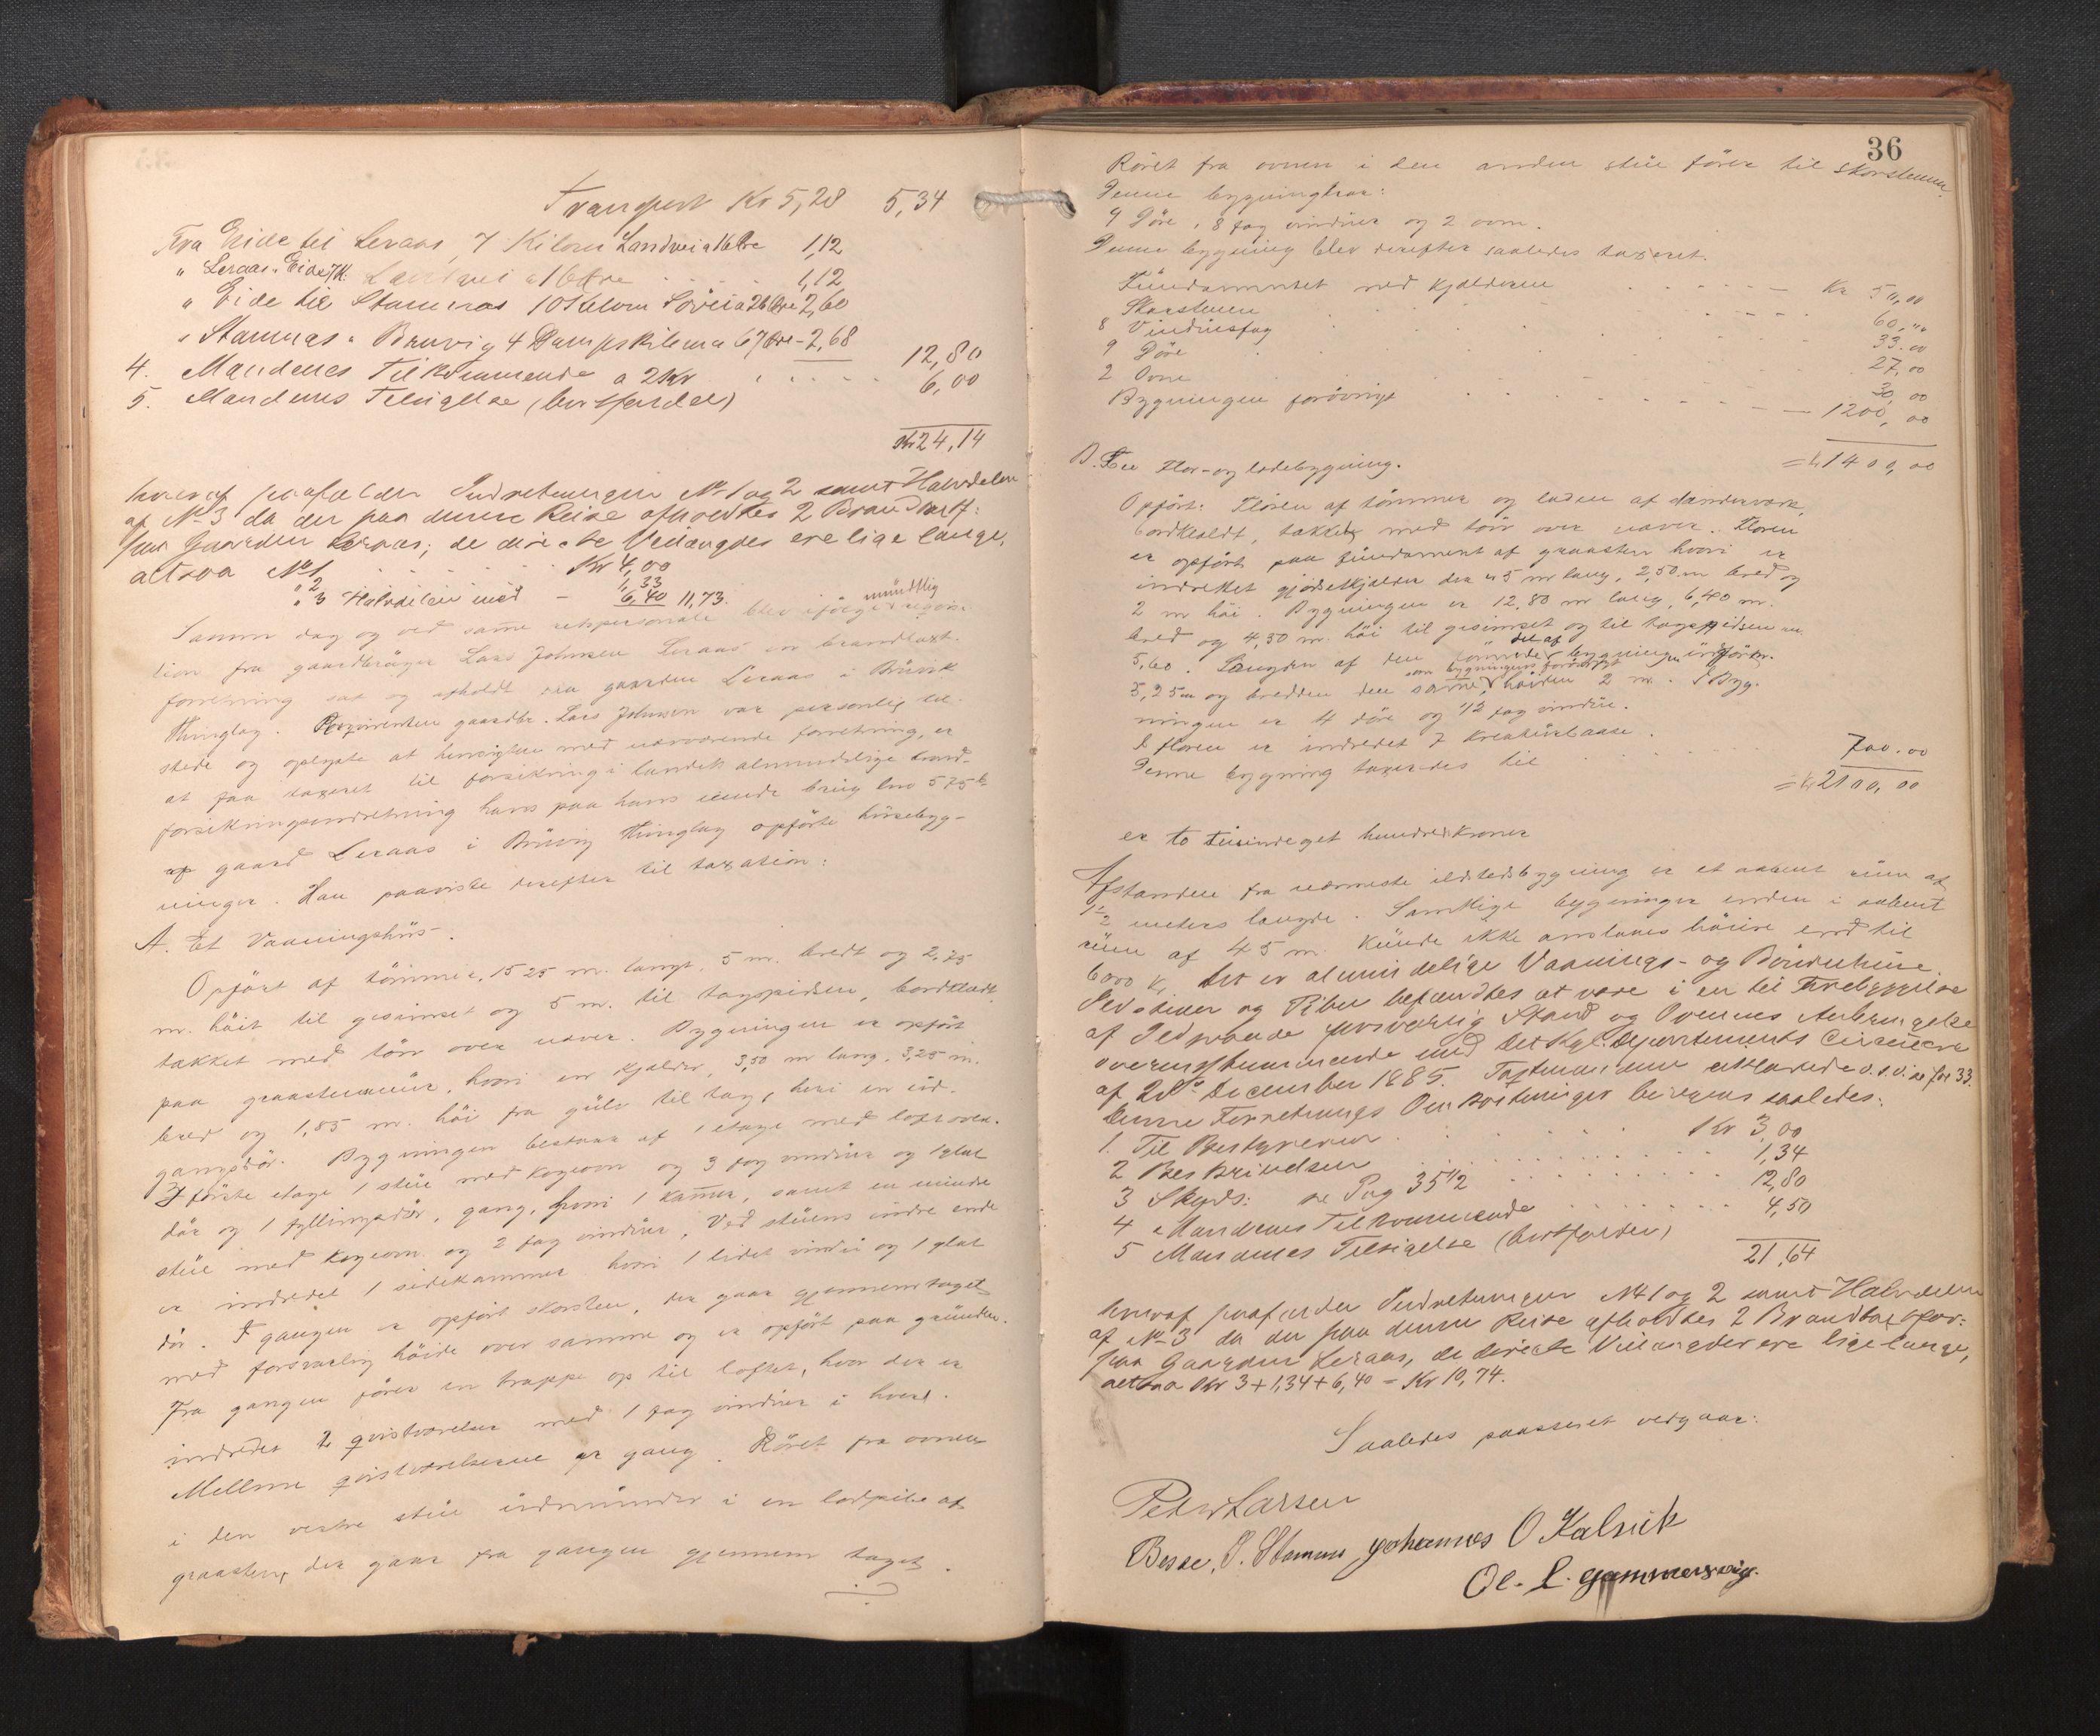 Transport Kr 5,28 5,34
Fra Eide til Leraas, 7 Kilom Landvei a 16 Øre 1,12
" Leraas " Eide 7 K. Landvei a 16 Øre 1,12
" Eide til Stamnes 10 Kilom Søvei a 26 Øre 2,60
" Stamnes " Bruvig 4 Dampskibsm a 67 Øre - 2,68
12,80
4. Mændenes Tilkommende a 2 Kr 6,00
5. Mændenes Tilsigelse (bortfalder)
Kr 24,14
hvoraf paafalder Indretningen No 1 og 2 samt Halvdelen
af No 3 da der paa denne Reise afholdtes 2 Brandtaxtf:
paa Gaarden Leraas; de directe Veilængder ere lige lange,
altsaa No 1 Kr 4,00
" 2 1,33
" 3 Halvdelen med - 6,40 11,73.
Samme dag og ved samme retspersonale blev ifølge mündtlig requisi-
tion fra gaardbrüger Lars Johnsen Leraas en brandtaxt-
forretning sat og afholdt paa gaarden Leraas i Brüvik
thinglag. Requirenten gaardbr. Lars Johnsen var personlig til-
stede og oplyste at hensigten med nærværende forretning, er
at faa taxeret til forsikring i landets almindelige brand-
forsikringsindretning hans paa hans iende brüg lno 575
af gaard Leraas i Brüvig thinglag opførte hüsebyg-
ninger. Han paaviste derefter til taxation:
A. Et Vaaningshüs.
Opført af tømmer, 15 25 m. langt, 5 m. bredt og 2,75
m. høit til gesimset og 5 m. til tagspidsen, bordklædt,
takket med törv over næver. Bygningen er opført
paa graastensmür, hvori en kjælder, 3,50 m lang, 3,25 m.
bred og 1,85 m. høi fra gülv til tag, heri en ind-
gangsdør. Bygningen bestaar af 1 etage med loft over.
I første etage 1 stüe med kogeovn og 3 fag vindüer og 1 glat
dør og 1 fyllingsdør, gang, hvori 1 kammer, samt en mindre
stüe med kogeovn og 2 fag vindüer. Ved stüens indre ende
er indredet 1 sidekammer hvori 1 lidet vindü og 1 glat
dør. I gangen er opført skorsten, der gaar gjennem taget
med forsvarlig høide over samme og er opført paa gründen.
Fra gangen fører en trappe op til loftet, hvor der er
indredet 2 qvistværelser med 1 fag vindüer i hvert.
Mellem qvistværelserne er gang. Røret fra ovnen
i den vestre stüe üdmünder i en lodpibe af
graasten, der gaar fra gangen gjennem taget.
36
Røret fra ovnen i den anden stüe fører til skorstenen.
Denne bygning har:
9 Døre, 8 fag vindüer og 2 ovne.
Denne bygning blev derefter saaledes taxeret.
Fündamentet med kjælderen Kr 50,00
Skorstenen 60,"
8 Vindüsfag 33.00
9 Døre 27,00
2 Ovne 30,00
Bygningen forøvrigt 1200,00
= kr 1400,00
B. En Flor- og ladebygning.
Opført: Floren af tømmer og laden af standerværk,
bordklædt, takket med törv over næver. Floren
er opført paa fündament af graasten hvori er
indrettet gjødselkjælder der er 5 m lang, 2,50 m bred og
2 m høi. Bygningen er 12,80 m lang, 6,40 m.
bred og 4,50 m. høi til gesimset og til tagspidsen
5,60. Længden af den tømrede del af bygningen üdgjør
5,25 m og bredden den samme som bygningens forøvrigt, høiden 2 m. I Byg-
ningen er 4 døre og 1/2 fag vindüe.
I floren er indredet 7 kreatürbaase.
Denne bygning taxeredes til 700.00
= kr 2100,00
er to tüsinde et hundrede kroner
Afstanden fra nærmeste ildstedsbygning er et aabent rüm af
1 1/2 meters længde. Samtlige bygninger inden i aabent
rüm af 45 m. künde ikke anslaaes høiere end til
6000 Kr. Det er almindelige Vaanings- og Bøndehuse.
Ildstener og Piber befandtes at være i en til Forebyggelse
af Ildsvaade forsvarlig Stand og Ovnenes Anbringelse
overensstemmende med det Kgl: Departements Circulære
af 21de December 1885. Taxtmændene erklærede o.s.v. se fol 33.
Denne Forretnings Omkostninger beregnes saaledes:
1. Til Bestyreren Kr 3,00
2 Beskrivelsen 1,34
3 Skyds: se Pag 35 1/2 12,80
4 Mændenes Tilkommende 4,50
5 Mændenes Tilsigelse (bortfalder)
21,64
hvoraf paafalder Indretningen No 1 og 2 samt Halvdelen
af No 3 da der paa denne Reise afholdtes 2 Brandtaxtfor:
paa Gaarden Leraas, de directe Veilængder ere lige lange,
altsaa Kr 3 + 1,34 + 6,40 = Kr 10,74.
Saaledes passeret vedgaar:
Peder Larsen
Besse. I. Stamnes Johannes O Kalvik
Ol. L. Gammersvig.